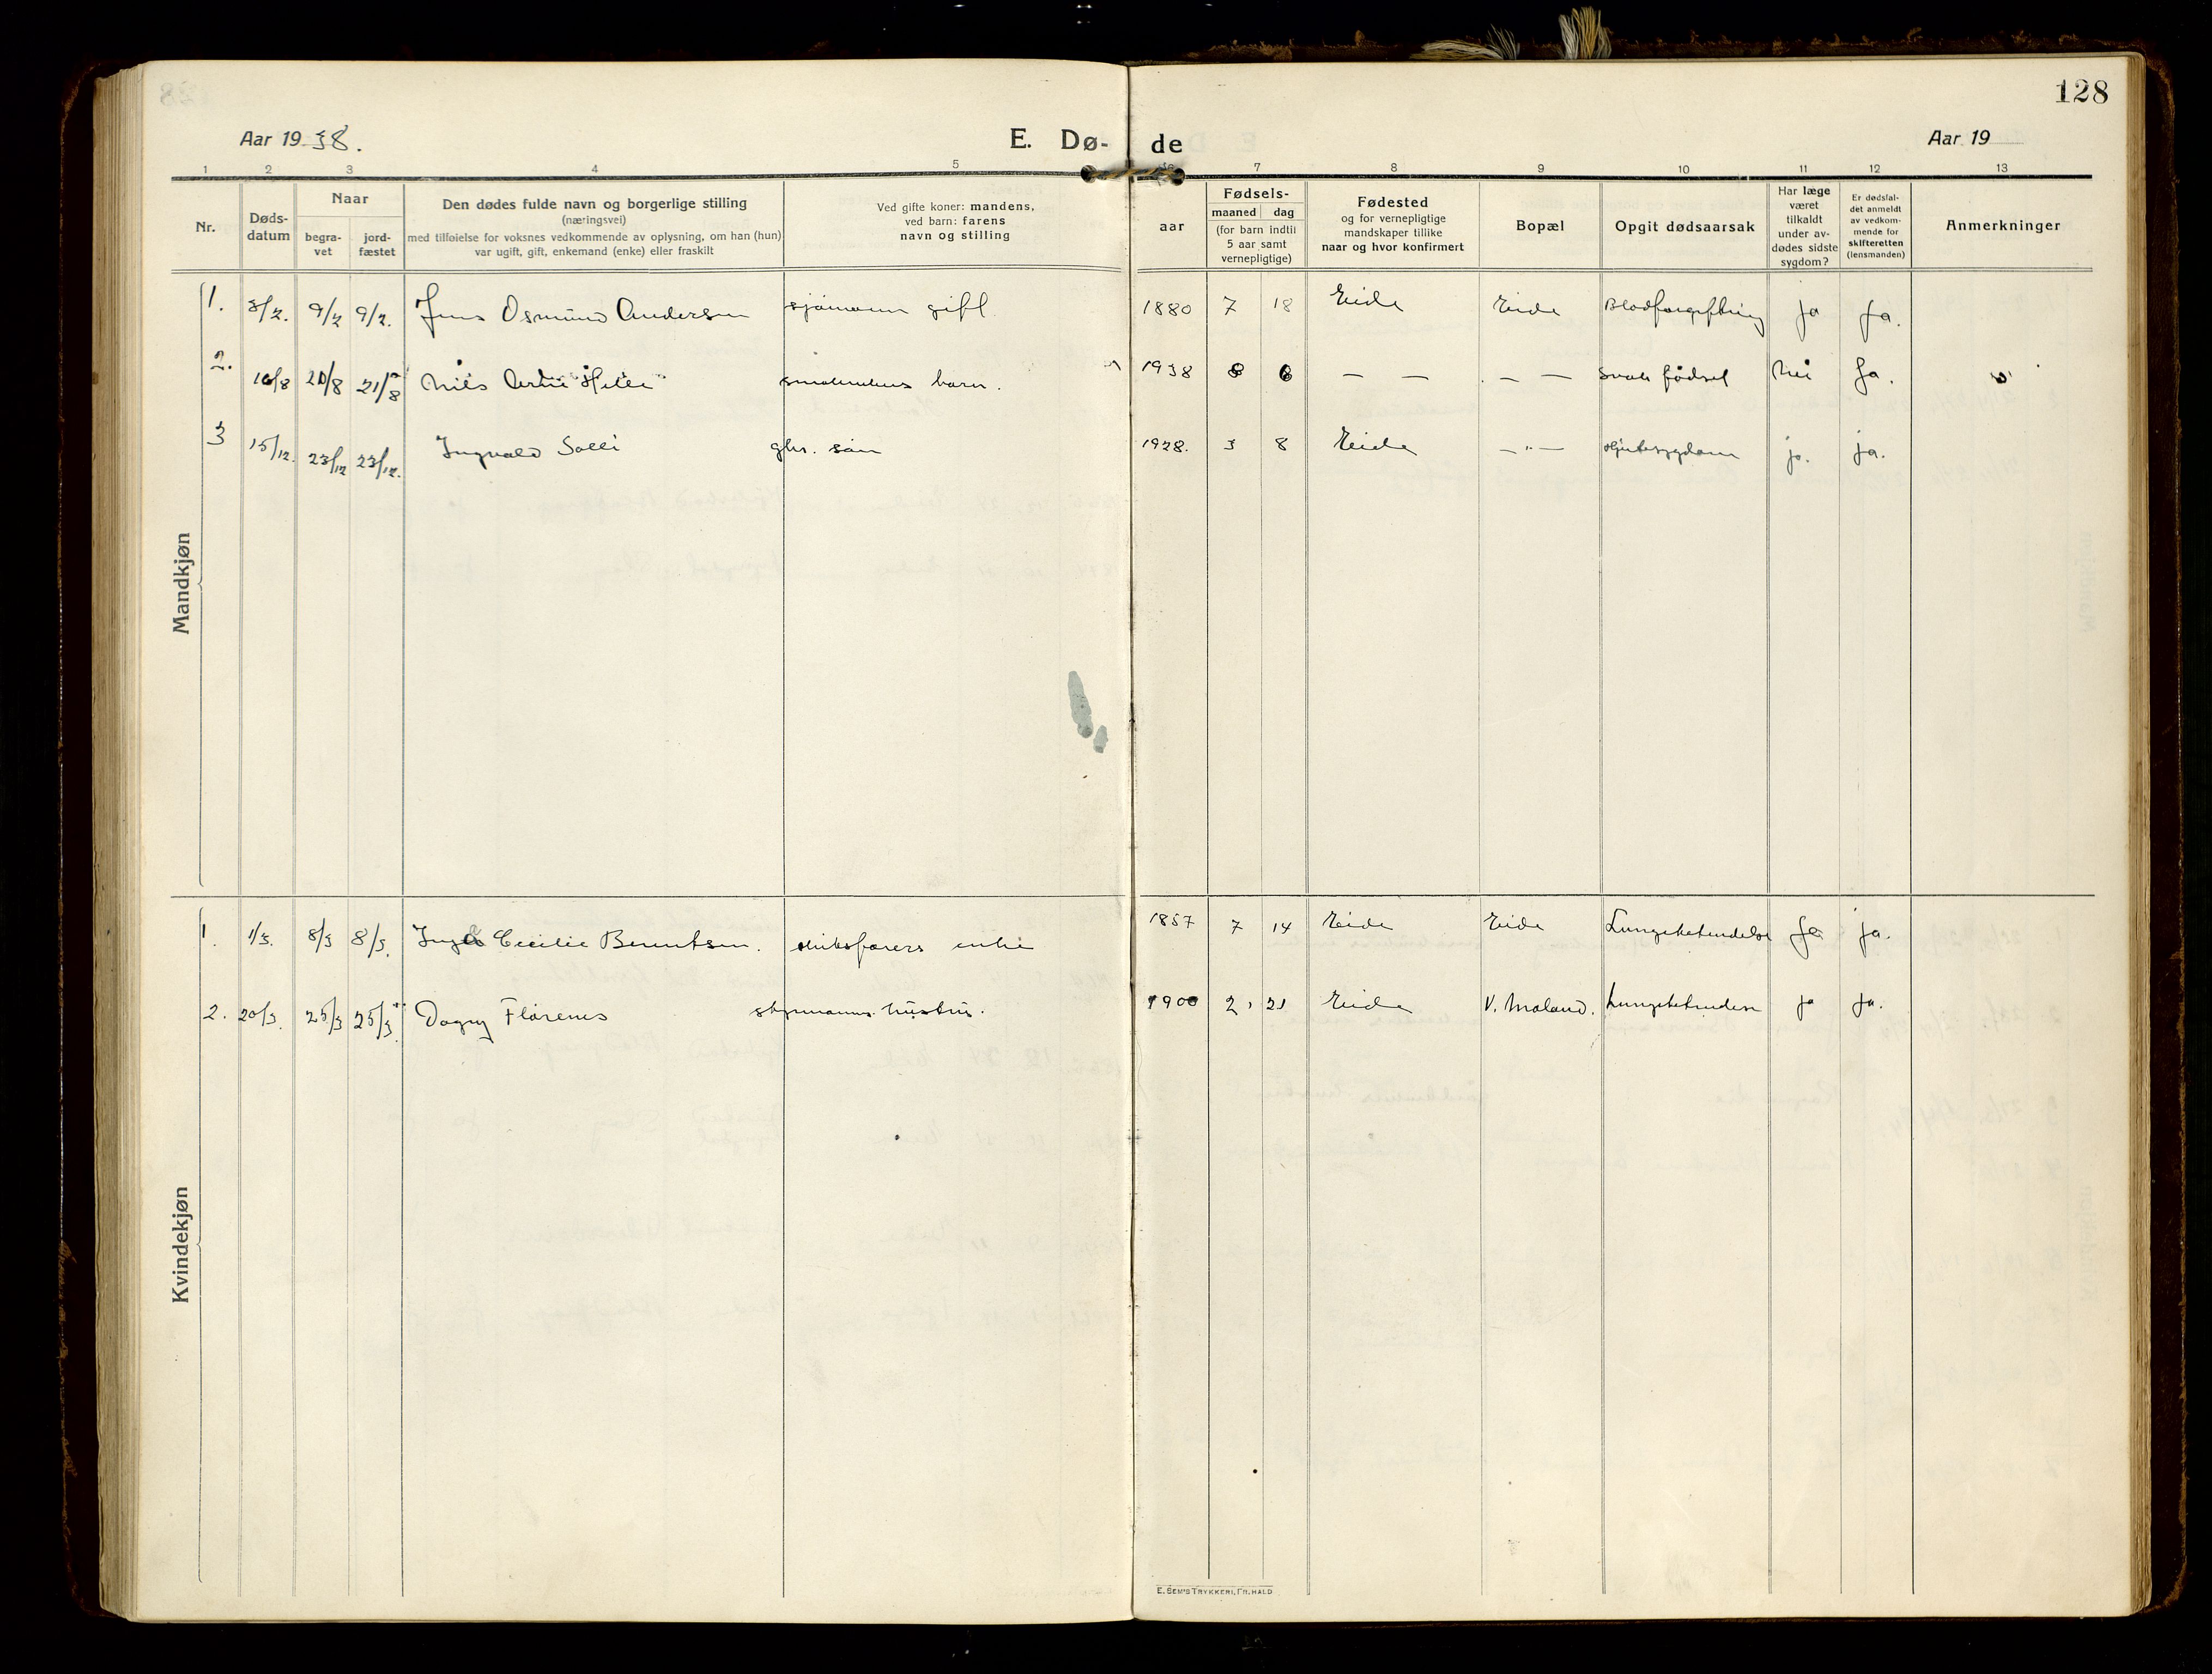 128
Aar 1938.
E. Dø-
de
Aar 19
1 2 3 4 5 7 8 9 10 11 12 13
Nr.
Døds-
datum
Naar
begra-
vet
jord-
fæstet
Den dødes fulde navn og borgerlige stilling
(næringsvei)
med tilføielse for voksnes vedkommende av oplysning, om han (hun)
var ugift, gift, enkemand (enke) eller fraskilt
Ved gifte koner: mandens,
ved barn: farens
navn og stilling
aar
Fødsels-
maaned dag
(for barn indtil
5 aar samt
vernepligtige)
Fødested
og for vernepligtige
mandskaper tillike
naar og hvor konfirmert
Bopæl
Opgit dødsaarsak
Har læge
været
tilkaldt
under av-
dødes sidste
sygdom?
Er dødsfal-
det anmeldt
av vedkom-
mende for
skifteretten
(lensmanden)
Anmerkninger
Mandkjøn
1. 3/2. 9/2 9/2. Jens Osmund Andersen sjömann gift. 1880 7 18 Eide Eide Blodforgiftning ja ja.
2. 10/8 21/8 21/8 Nils Arne barn. 1938 8 6 — — — — svak födsel Nei ja.
3 15/12. 23/12 23/12. Ingvald Solli gbr. sön 1928. 3 8 Eide — " — Hjertesygdom ja. ja.
Kvindekjøn
1. 1/3. 8/3 8/3. Inga Cecilie Berntsen. skibsförers enke 1857 7 14 Eide Eide Lungebetendelse ja ja.
2. 20/3. 25/3 25/3 Dagny Florenes styrmanns hustru. 1900 2, 21 Eide V. Moland. Lungebetendelse ja ja.
E. SEM'S TRYKKERI, FR.HALD